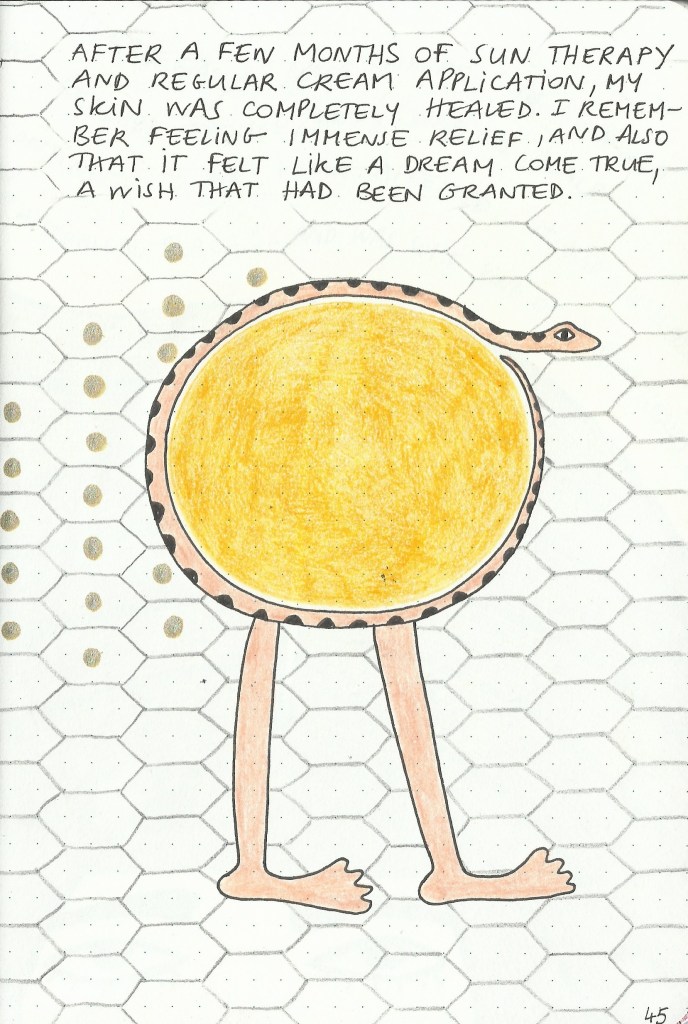 AFTER A FEW MONTHS OF SUN THERAPY
AND REGULAR CREAM APPLICATION, MY
SKIN WAS COMPLETELY HEALED. I REMEM-
BER FEELING IMMENSE RELIEF, AND ALSO
THAT IT FELT LIKE A DREAM COME TRUE,
A WISH THAT HAD BEEN GRANTED.
45